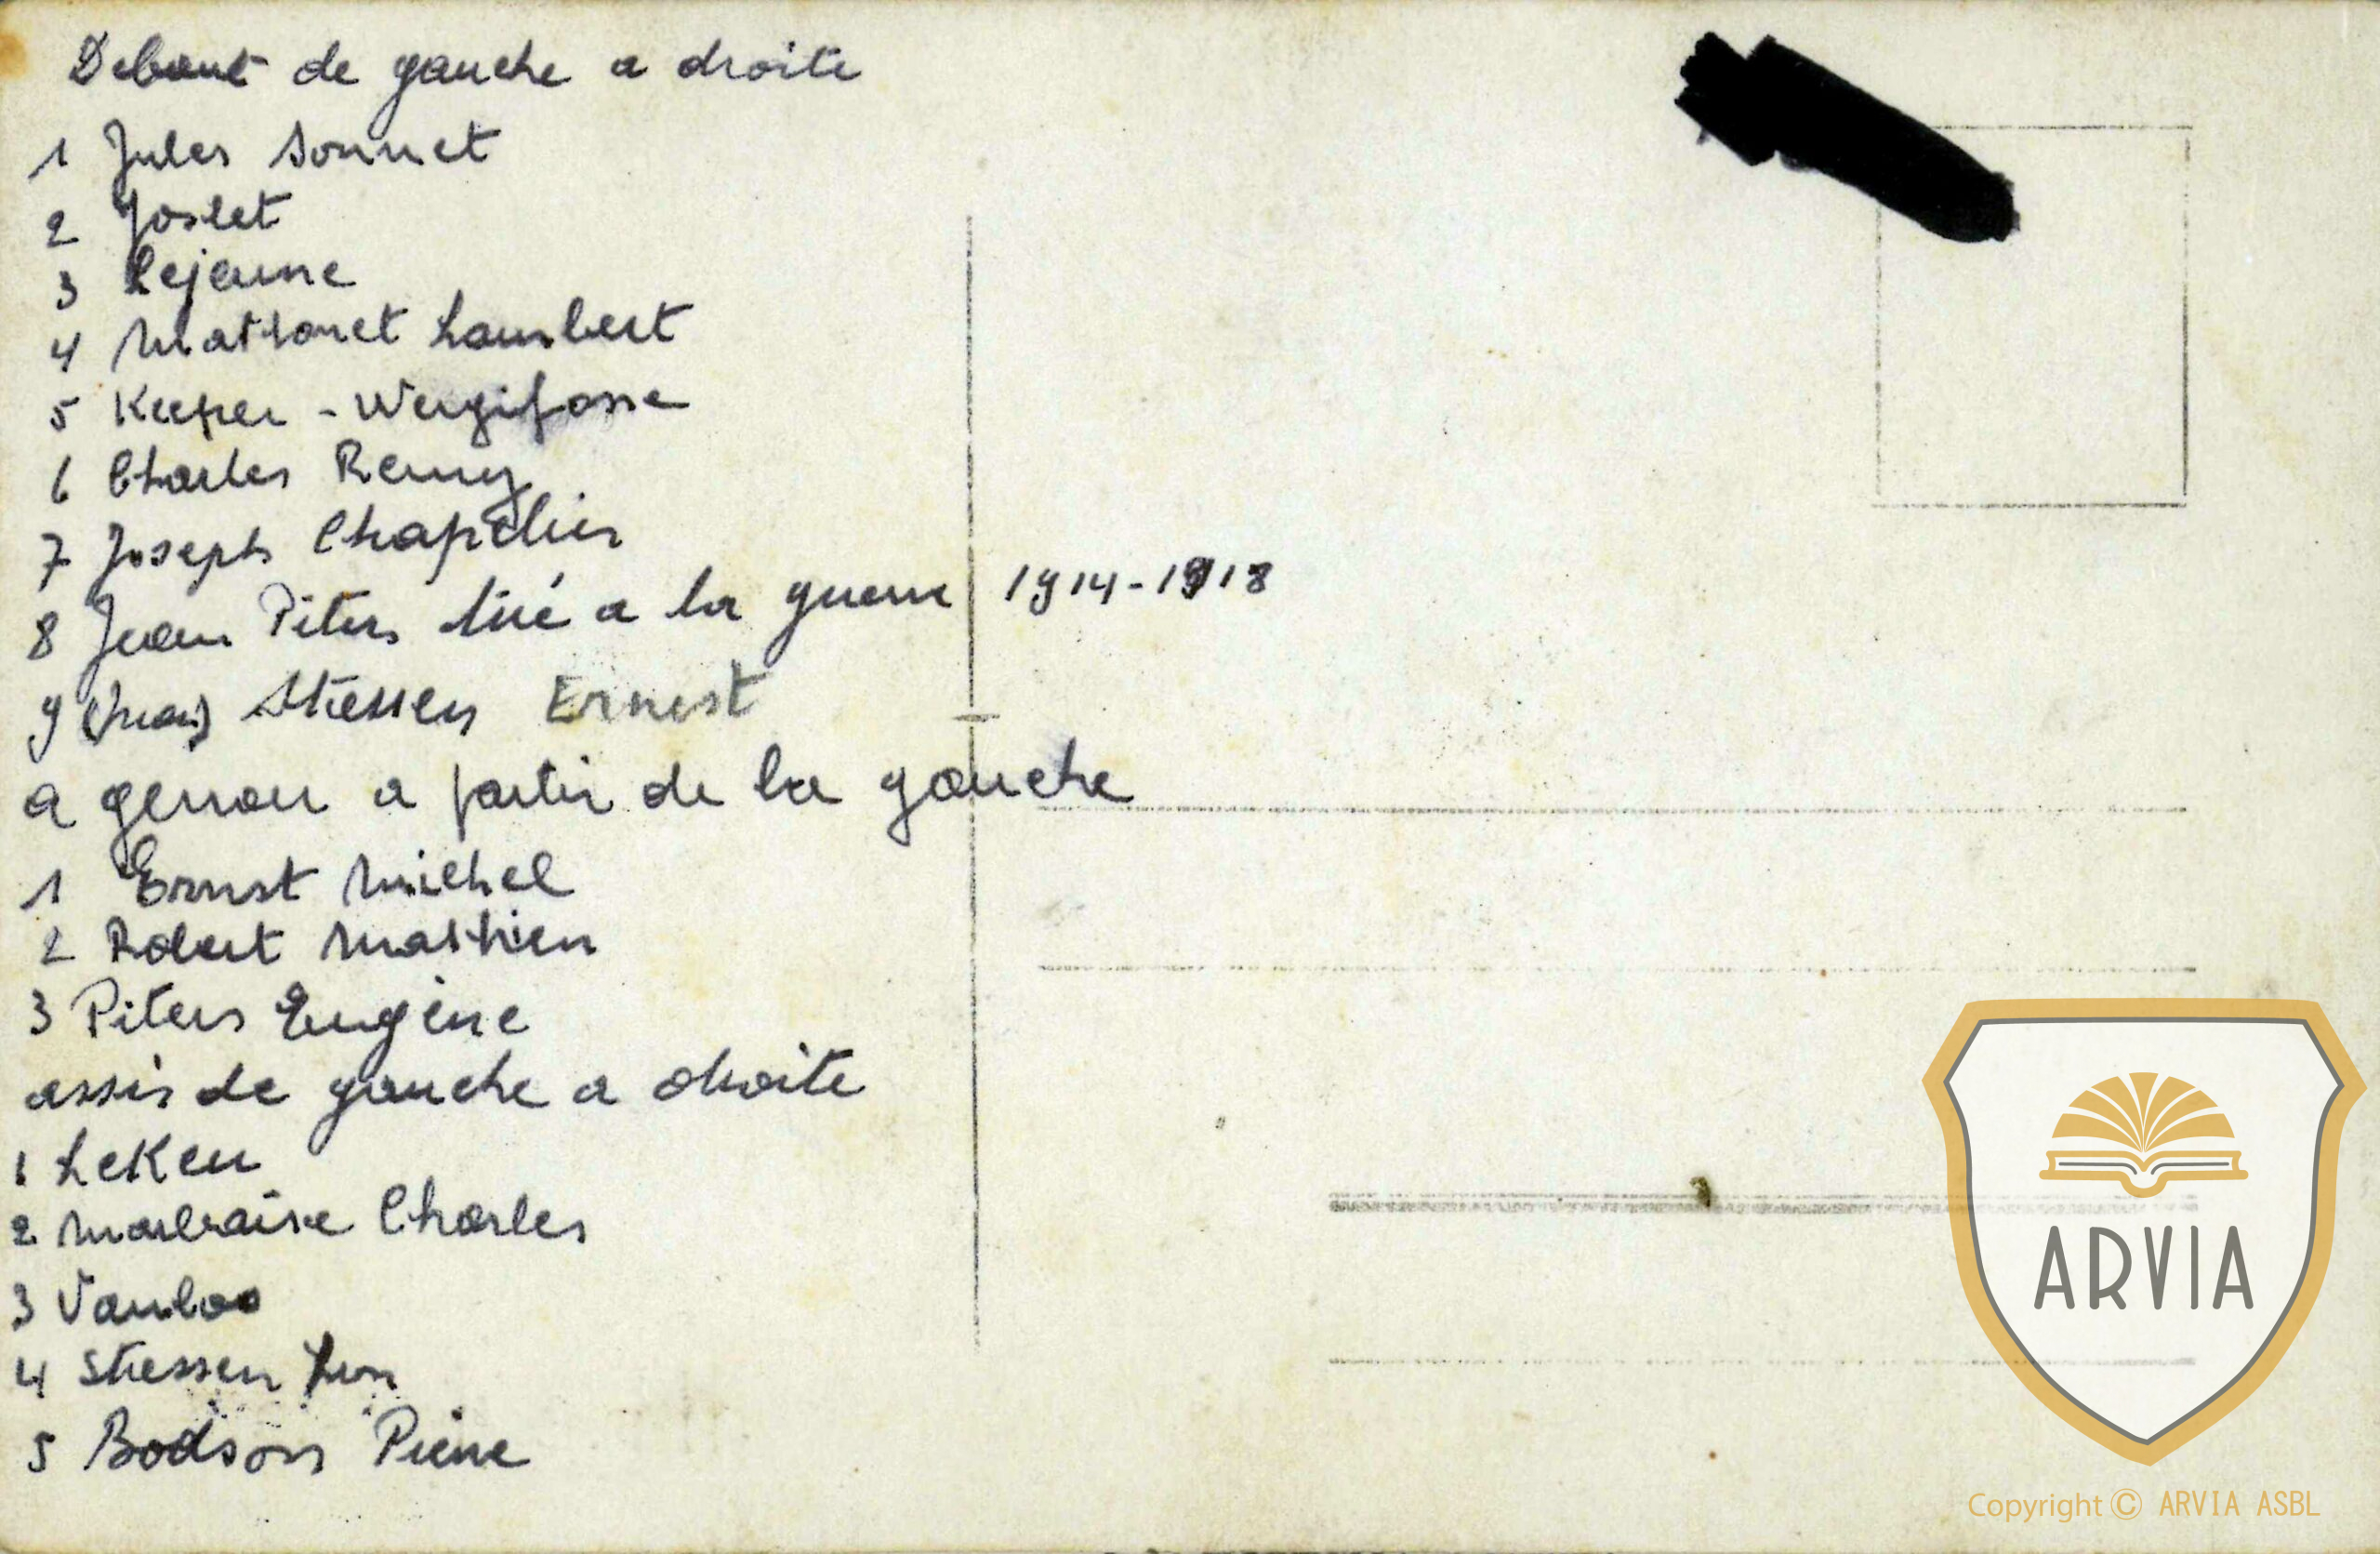 Debout de gauche a droite
1 Jules Sonnet
2 Joslet
3 Lejeune
4 Mathonet Lambert
5 Keeper - Wergifosse
6 Charles Remy
7 Joseph Chapelier
8 Jean Piters tué a la guerre 1914-1918
9 Stessen Ernest
a genou a partir de la gauche
1 Ernest Michel
2 Robert Mathieu
3 Piters Eugène
assis de gauche a droite
1 LeKeu
2 Malraise Charles
3 Vanloo
4 Stessen Leon
5 Bodson Pierre
ARVIA
Copyright © ARVIA ASBL